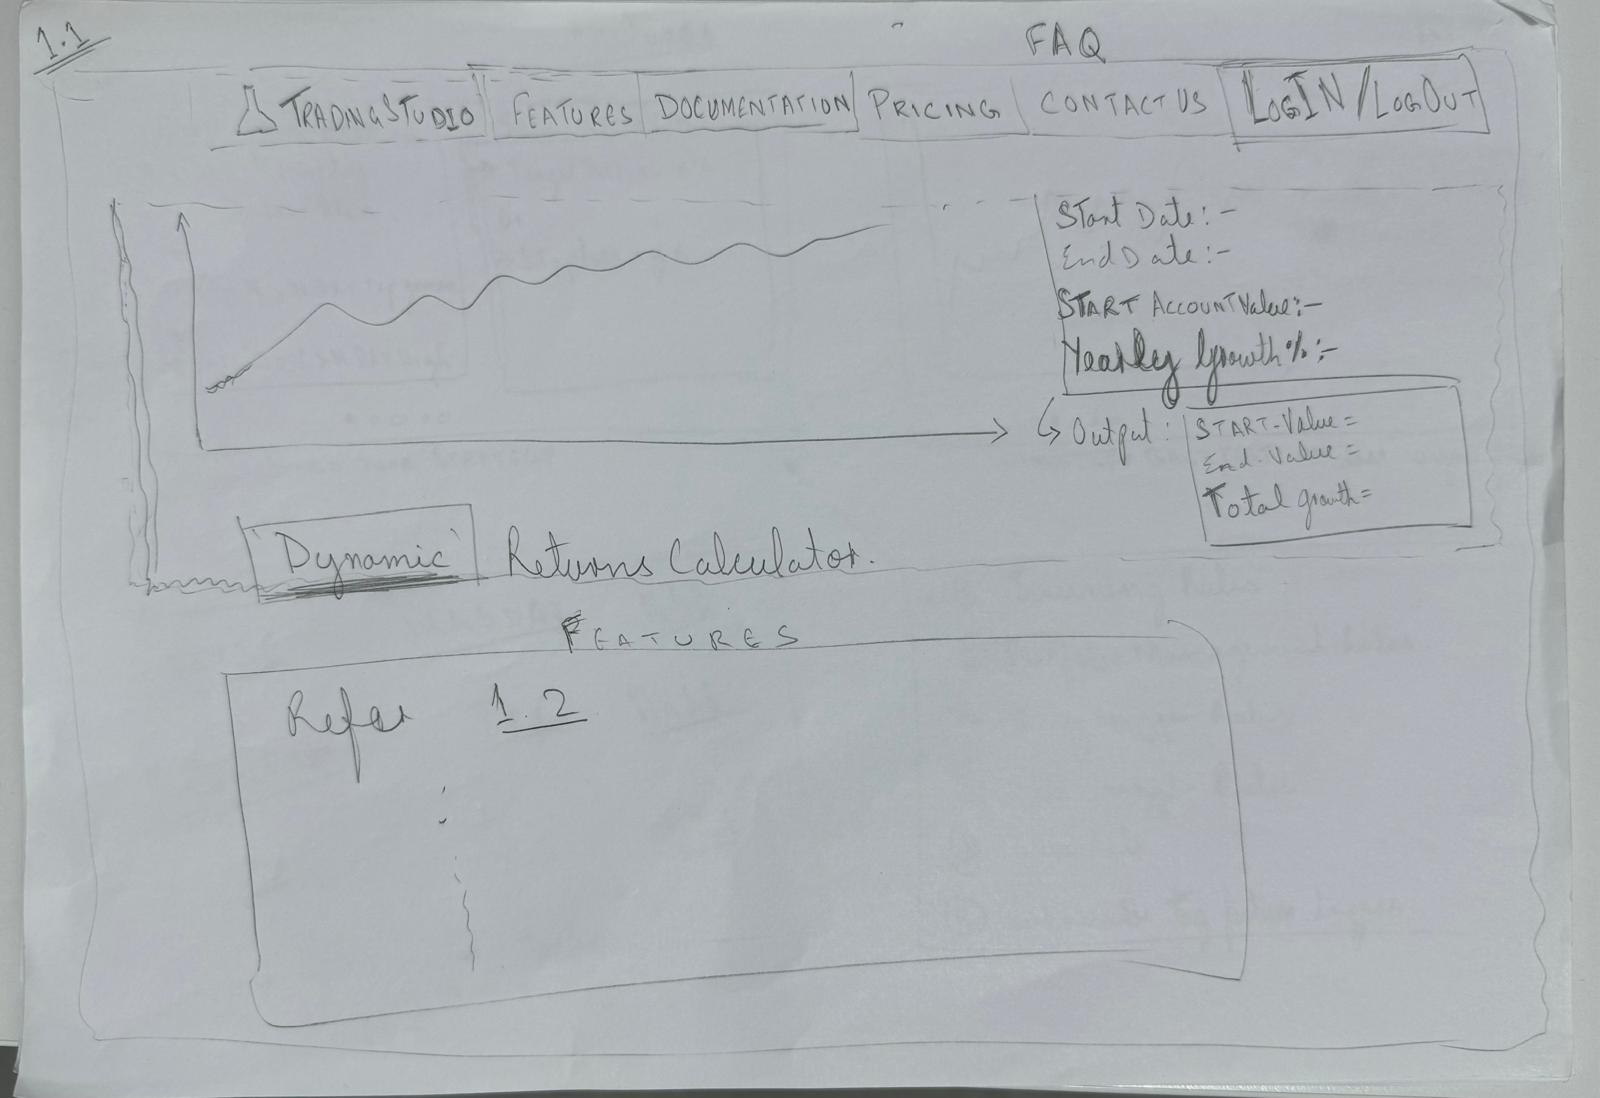 1.1
FAQ
TRADINGSTUDIO FEATURES DOCUMENTATION PRICING CONTACT US LOGIN/LOGOUT
Start Date:-
End Date:-
START ACCOUNT Value:-
Yearly Growth%:-
Output:
START-Value=
End-Value=
Total growth=
"Dynamic" Returns Calculator.
FEATURES
Refer 1.2